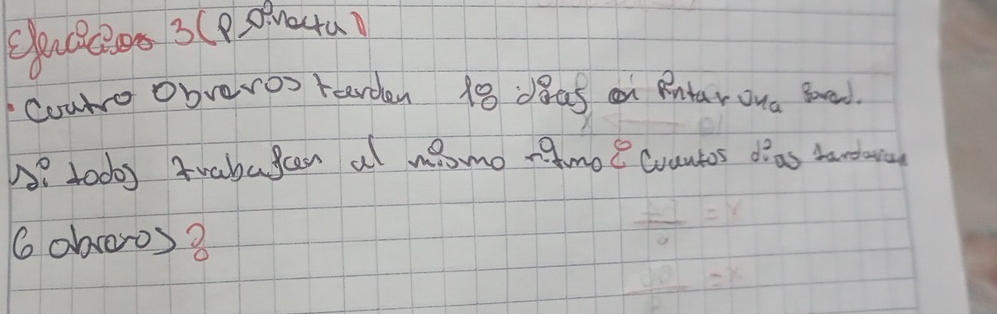 Ejercicios 3 (P. Directa)
• Cuatro Obreros tardan 18 días en Pintar una Pared.
Si todos trabajan al mismo ritmo ¿Cuantos días tardaran
6 obreros?